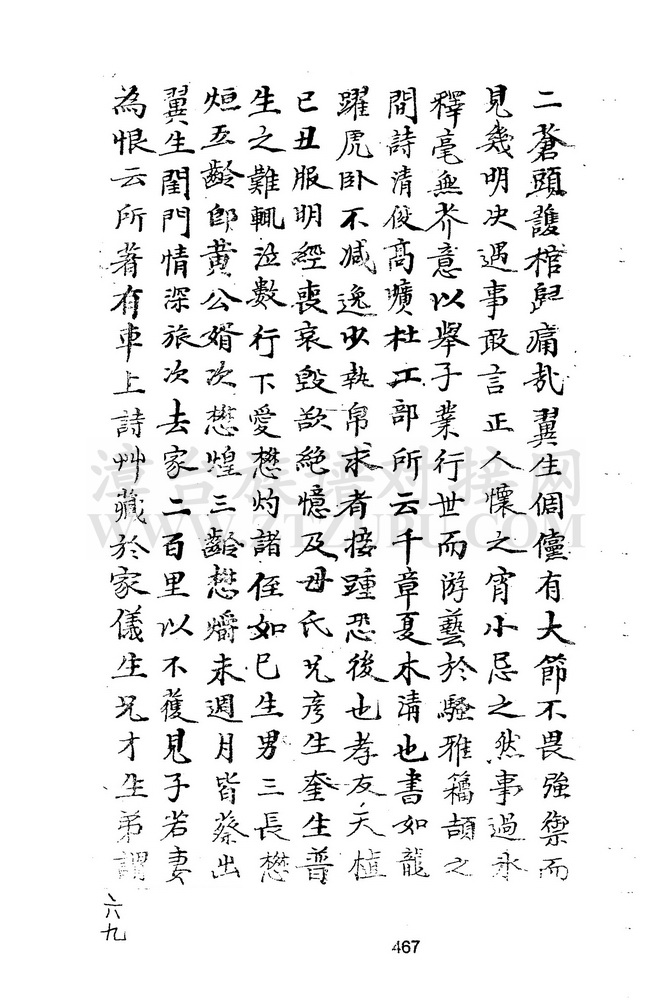 二蒼頭護棺歸痛哉翼生倜儻有大節不畏強禦而
見幾明决遇事敢言正人懷之宵小忌之然事過氷
釋毫無芥意以舉子業行世而游藝於騷雅籀頡之
間詩清俊高曠杜工部所云千章夏木清也書如龍
躍虎卧不减逸少執帛求者接踵恐後也孝友天植
已丑服明經喪哀毀欲絶憶及母氏兄彦生奎生普
生之難輒泣數行下愛懋灼諸侄如已生男三長懋
烜五齡郎黄公婿次懋煌三齡懋爝未週月皆蔡出
翼生閨門情深旅次去家二百里以不獲見子若妻
為恨云所著有車上詩艸藏於家儀生兄才生弟謂
六九
467
漳台族谱对接网
WWW.ZTZUPU.COM